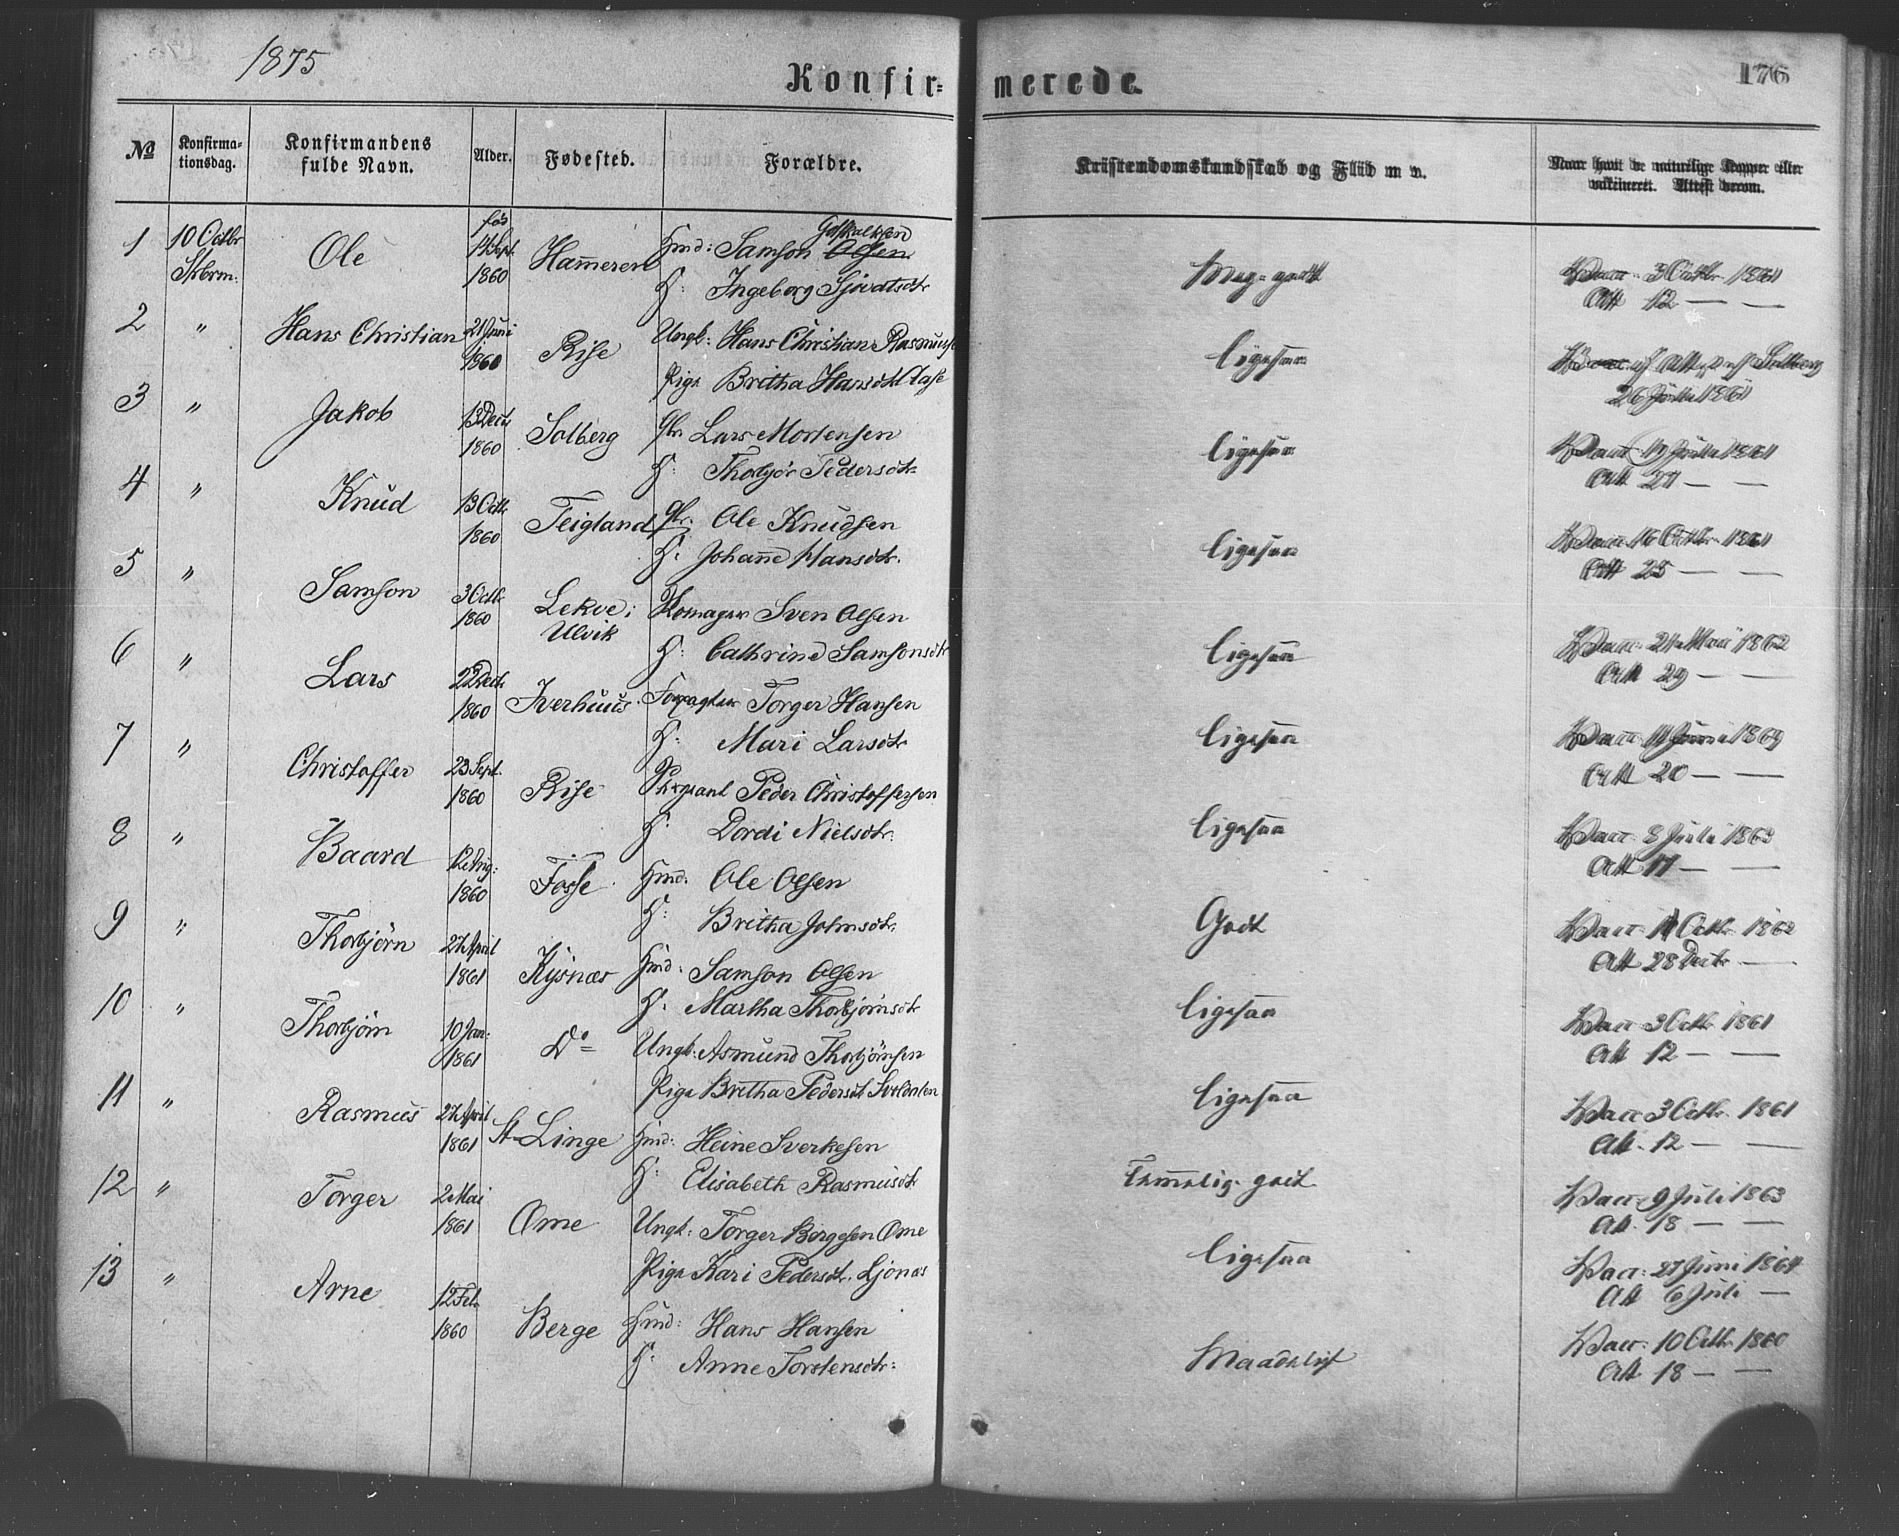 1875
Konfir= merede.
176
No
Konfirma-
tionsdag.
Konfirmandens
fulde Navn.
Alder.
Fødested.
Forældre.
Kristendomskundskab og Flid m v.
Naar havt de naturlige Kopper eller
vakcineret. Attest derom.
1 10 Octbr Skbrm. Ole 14 Sept. 1860 Hameren Hmd: Samson Olsen Gotskalksen
H: Ingeborg Sjovatsdtr
Meg. godt
Vacc. 3 Octbr 1861
Att 12 — —
2 " Hans Christian 21 Juni 1860 Rise Ungk: Hans Christian Rasmus
Pige Britha Hansdtr
Ligesaa
Vacc. Att Solberg
26 1861
3 " Jakob 13 Dec 1860 Solberg Gbr. Lars Mortensen
H: Thorbjør Pedersdtr
Ligesaa
Vacc 19 1861
Att 27 — —
4 " Knud 13 Octb. 1860 Teigland Gbr. Ole Knudsen
H: Johanne Hansdtr.
Ligesaa
Vacc. 16 Octbr. 1861
Att 25 — —
5 " Samson 3 Octb. 1860 Lekve i Ulvik Sven Olsen
H: Cathrine Samsonsdtr
Ligesaa
Vacc. Mai 1862
Att 29 — —
6 " Lars 22 Dec. 1860 Iverhuus Forpagter Torger Hansen
H: Mari Larsdtr
Ligesaa
Vacc. 1869
Att 20 — —
7 " Christoffer 23 Sept. 1860 Rise Sergeant Peder Christoffersen
H: Dordi Nielsdtr.
Ligesaa
Vacc. 8 Juli 1863
Att 17 — —
8 " Baard 1860 Fosse Hmd. Ole Olsen
H: Britha Johnsdtr.
Godt
Vacc. Octbr. 1862
Att 28 Dectr. —
9 " Thorbjörn 27 April 1861 Kysnæs Hmd: Samson Olsen
H: Martha Thorbjörnsdtr
Ligesaa
Vacc 3 Octbr 1861
Att 12 — —
10 " Thorbjörn 10 Jan: 1861 Do Ungk: Asmund Thorbjörnsen
Pige Britha Pedersdtr Svoldalen
Ligesaa
Vacc 3 Octbr. 1861
Att. 12 — —
11 " Rasmus 27 April 1861 St Linge Hmd: Heine Sverkesen
H: Elisabeth Rasmusdtr
Temelig godt
Vacc. 9 Juli 1863
Att. 18 — —
12 " Torger 2 Mai 1861 Ome Ungk: Torger Börgesen Ome
Pige Kari Pedersdtr. Ljonæs
Ligesaa
Vacc: 27 Juni 1864
Att 6 Juli —
13 " Arne 12 Feb. 1860 Berge Hmd: Hans Hansen
H: Anne Torstensdtr:
Maadelig
Vacc. 10 Octbr. 1860
Att 18 — —